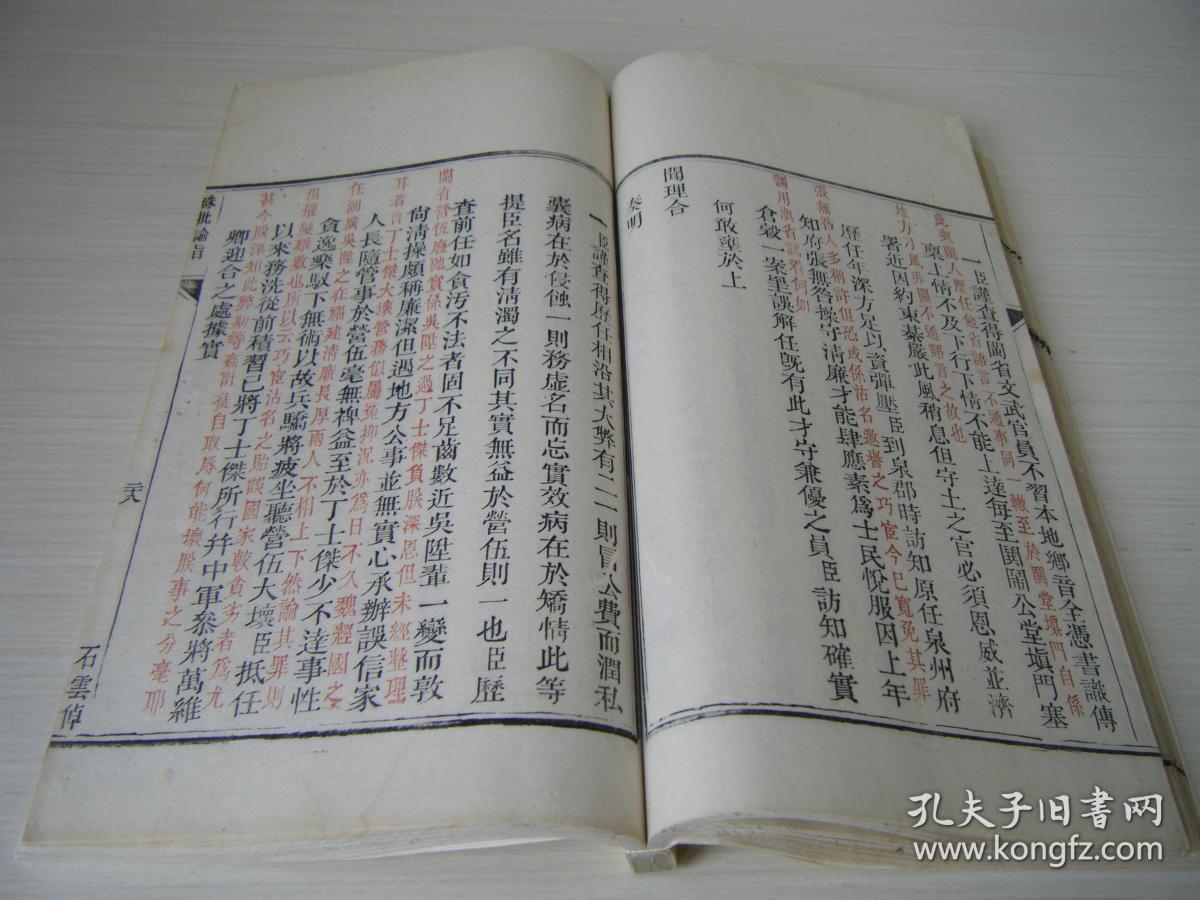 一臣謹查得閩省文武官員不習本地鄉音全憑書識傳
此與閩人歷任他省語言不通事同一轍至於閧堂塡門自係
稟上情不及下行下情不能上達每至鬨鬧公堂塡門塞
地方刁風非關不通語言之故也
署近因約束綦嚴此風稍息但守土之官必須恩威並濟
歷任年深方足以資彈壓臣到泉郡時訪知原任泉州府
張無咎人多稱許但恐或係沽名邀譽之巧宦今已寬免其罪
知府張無咎操守淸廉才能肆應素爲士民悅服因上年
調用滇省試看何如
倉穀一案罣誤解任旣有此才守兼優之員臣訪知確實
何敢壅於上
聞理合
奏明
一臣謹查得歷任相沿其大弊有二一則冒公費而潤私
囊病在於侵蝕一則務虛名而忘實效病在於矯情此等
提臣名雖有淸濁之不同其實無益於營伍則一也臣歷
查前任如貪污不法者固不足齒數近吳陞輩一變而敦
閩省營伍廢弛實係吳陞之過丁士傑負朕深恩但未經整理
尙淸操頗稱廉潔但遇地方公事並無實心承辦誤信家
耳若言丁士傑大壞營務似屬寃抑況亦爲日不久魏經國之
人長隨管事於營伍毫無裨益至於丁士傑少不達事性
在湖廣吳陞之在福建淸廉長厚兩人不相上下然論其罪則
貪逸樂馭下無術以故兵驕將疲坐聽營伍大壞臣抵任
擢髮難數也所以云巧宦沽名之貽誤國家較貪劣者爲尤
以來務洗從前積習已將丁士傑所行幷中軍叅將萬維
甚今朕深知此弊斯等蠢計徒自取辱何能壞朕事之分毫耶
卿迎合之處據實
硃批諭旨
六
石雲倬
孔夫子旧书网
www.kongfz.com